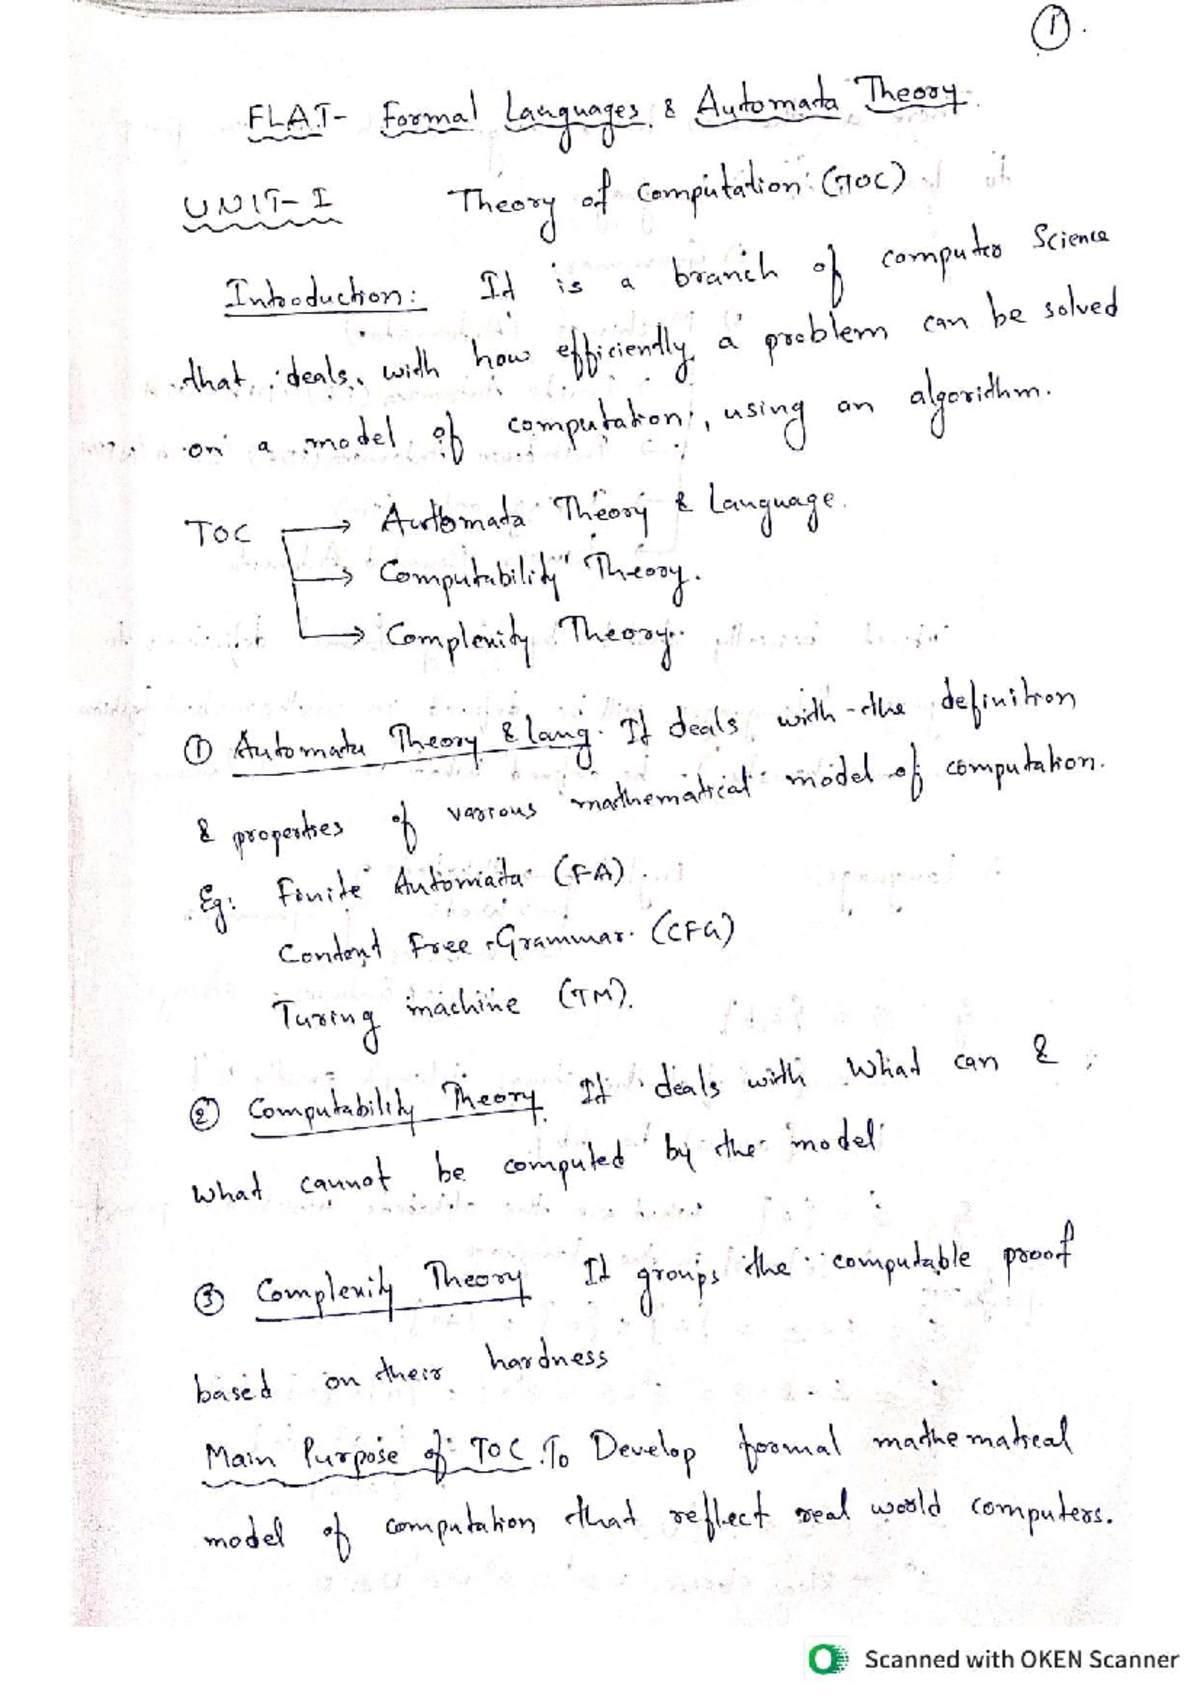 1.
FLAT- Formal Languages & Automata Theory.
UNIT-I Theory of Computation: (TOC)
Introduction: It is a branch of computer Science
that deals with how efficiently a problem can be solved
on a model of computation, using an algorithm.
TOC → Automata Theory & Language.
→ Computability Theory.
→ Complexity Theory.
① Automata Theory & lang. It deals with the definition
& properties of various mathematical model of computation.
Eg: Finite Automata (FA).
Context Free Grammar. (CFG)
Turing machine (TM).
② Computability Theory. It deals with What can &
what cannot be computed by the model
③ Complexity Theory It groups the computable proof
based on their hardness
Main Purpose of TOC. To Develop formal mathematical
model of computation that reflect real world computers.
Scanned with OKEN Scanner